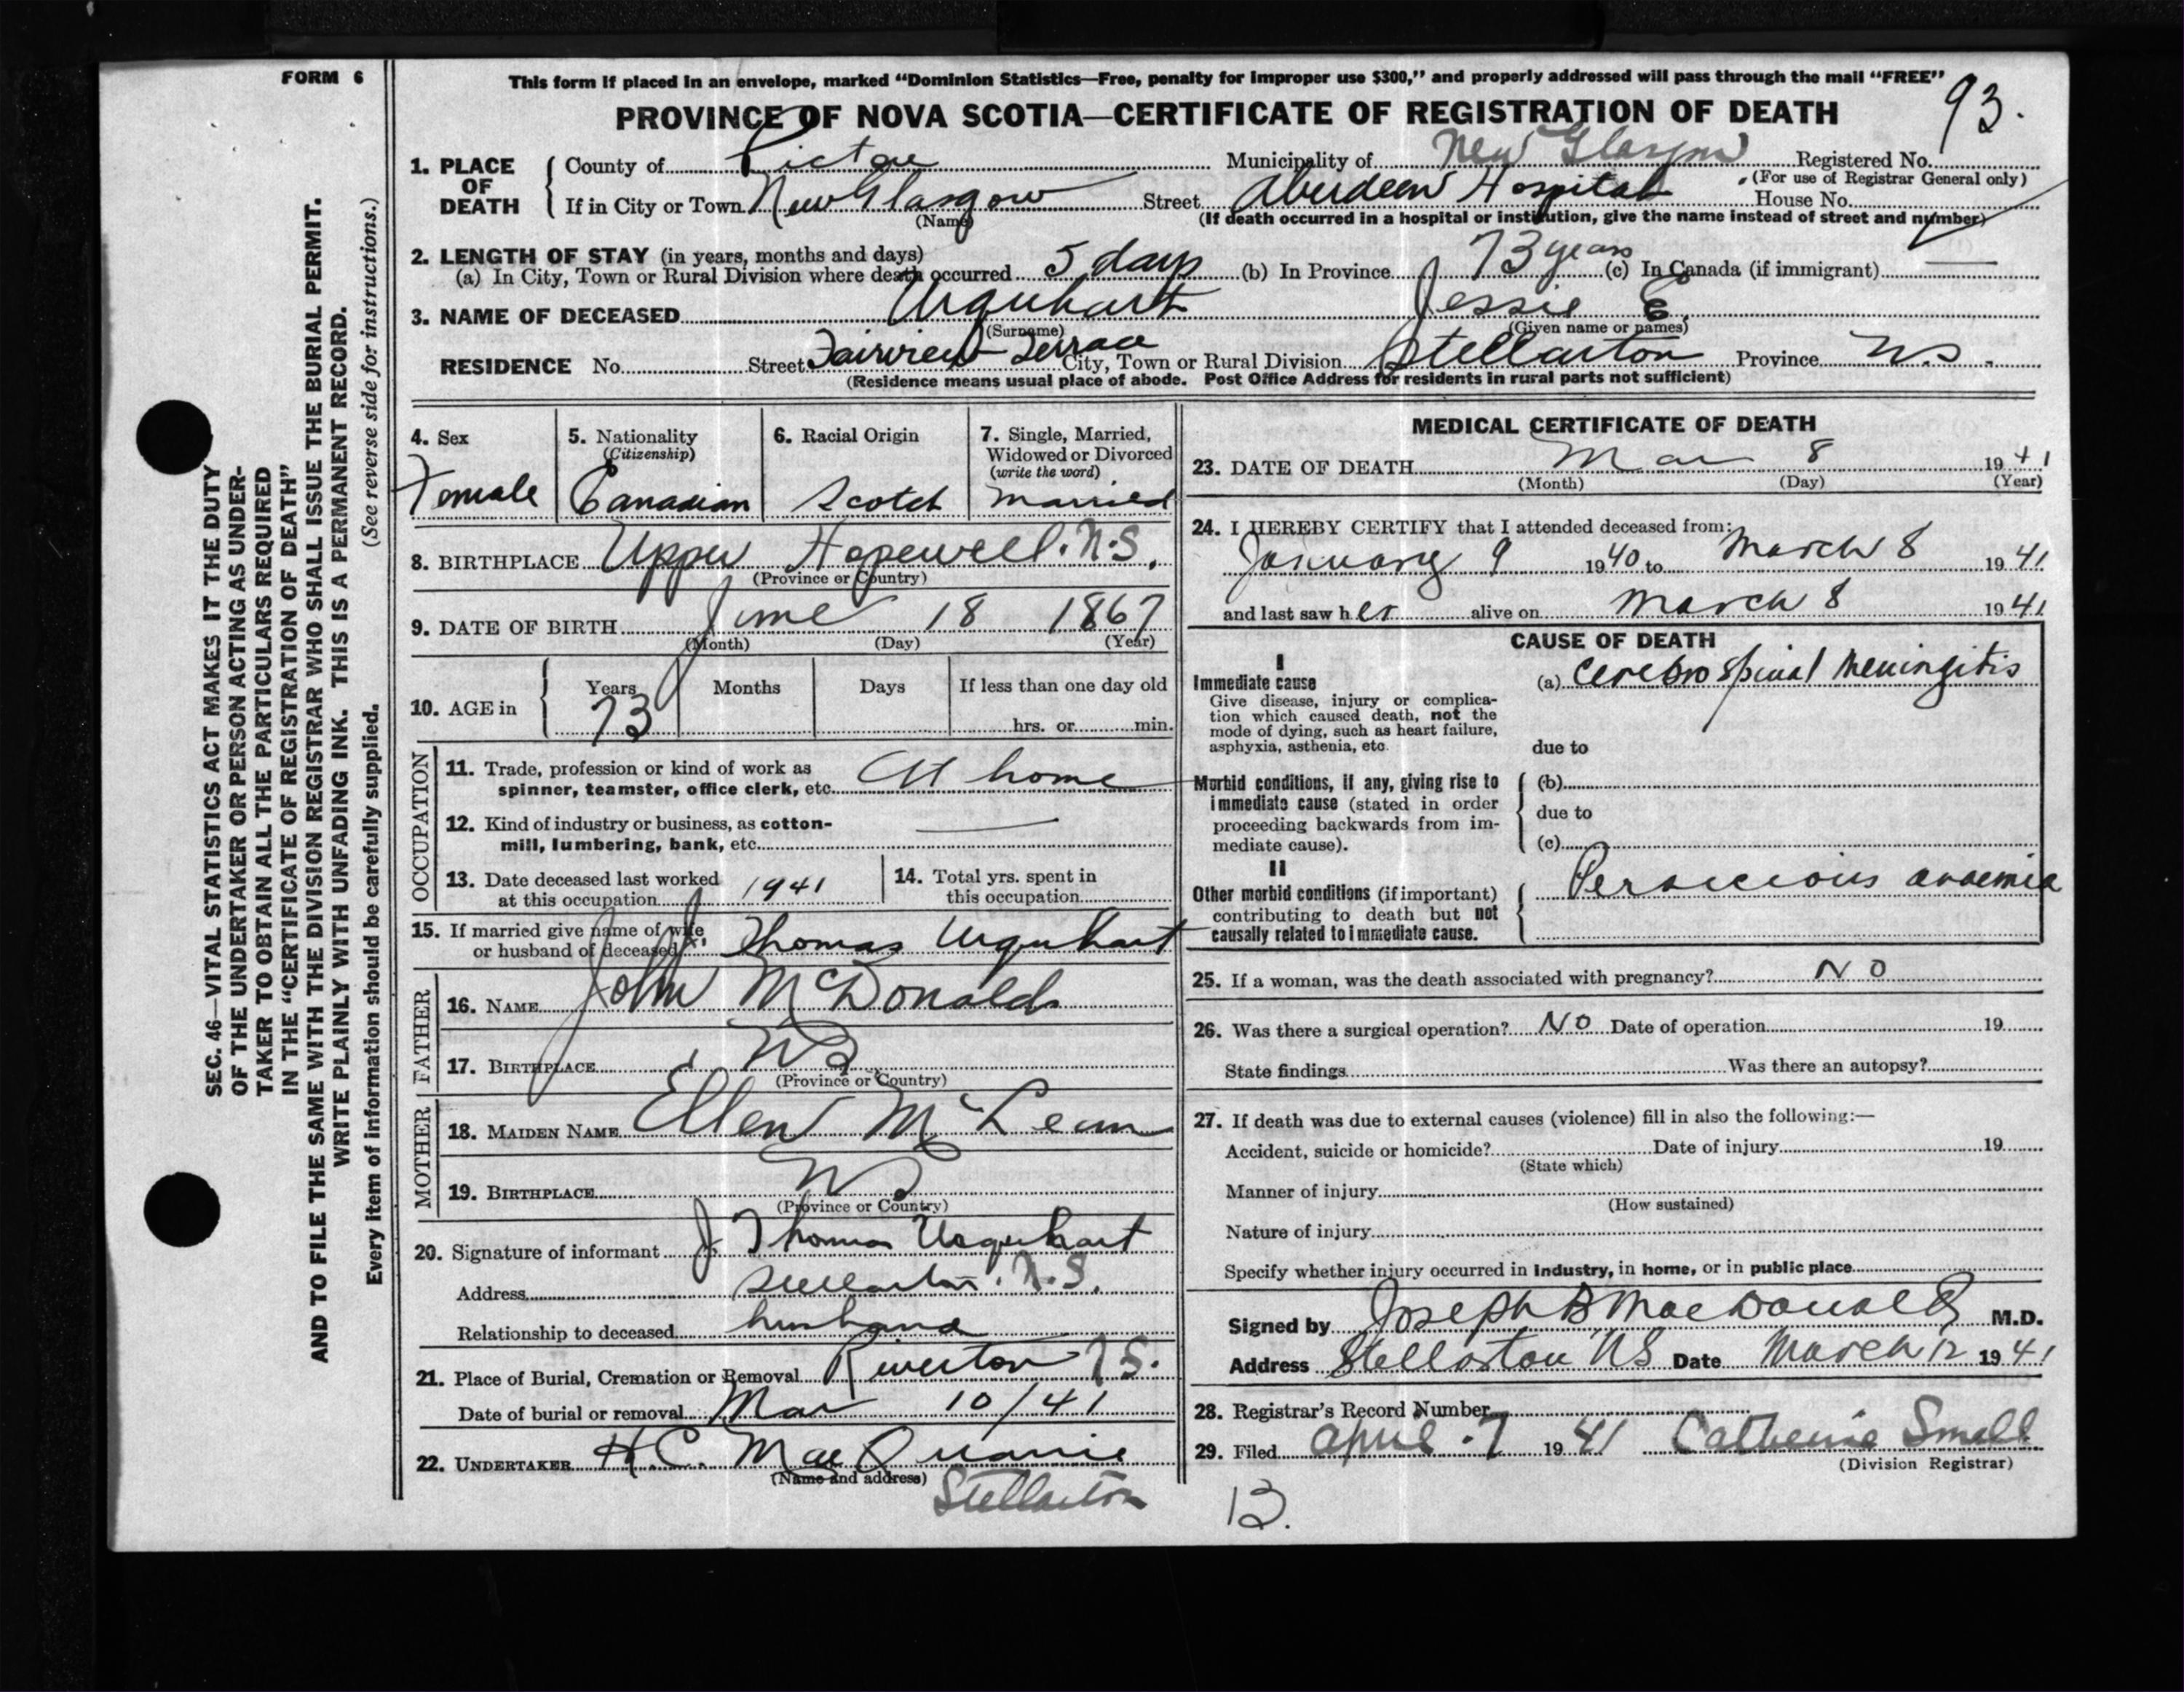 FORM 6
This form if placed in an envelope, marked “Dominion Statistics—Free, penalty for improper use $300,” and properly addressed will pass through the mail “FREE”
PROVINCE OF NOVA SCOTIA—CERTIFICATE OF REGISTRATION OF DEATH
93.
1. PLACE OF DEATH County of Pictou Municipality of New Glasgow Registered No.
(For use of Registrar General only)
If in City or Town New Glasgow Street Aberdeen Hospital House No.
(Name) (If death occurred in a hospital or institution, give the name instead of street and number)
2. LENGTH OF STAY (in years, months and days)
(a) In City, Town or Rural Division where death occurred 5 days (b) In Province 73 years (c) In Canada (if immigrant) —
3. NAME OF DECEASED Urquhart Jessie E.
(Surname) (Given name or names)
RESIDENCE No. Street Fairview Terrace City, Town or Rural Division Stellarton Province N.S.
(Residence means usual place of abode. Post Office Address for residents in rural parts not sufficient)
4. Sex
Female
5. Nationality
(Citizenship)
Canadian
6. Racial Origin
Scotch
7. Single, Married,
Widowed or Divorced
(write the word)
Married
8. BIRTHPLACE Upper Hopewell. N.S.
(Province or Country)
9. DATE OF BIRTH June 18 1867
(Month) (Day) (Year)
10. AGE in Years Months Days If less than one day old
73 hrs. or min.
OCCUPATION
11. Trade, profession or kind of work as
spinner, teamster, office clerk, etc. At home
12. Kind of industry or business, as cotton-
mill, lumbering, bank, etc. —
13. Date deceased last worked
at this occupation 1941
14. Total yrs. spent in
this occupation
15. If married give name of wife
or husband of deceased J. Thomas Urquhart
FATHER
16. NAME John McDonald
17. BIRTHPLACE NS
(Province or Country)
MOTHER
18. MAIDEN NAME Ellen McLean
19. BIRTHPLACE NS
(Province or Country)
20. Signature of informant J Thomas Urquhart
Address Stellarton. N.S.
Relationship to deceased husband
21. Place of Burial, Cremation or Removal Riverton N.S.
Date of burial or removal Mar 10/41
22. UNDERTAKER H.C. MacQuarrie
(Name and address)
Stellarton
MEDICAL CERTIFICATE OF DEATH
23. DATE OF DEATH Mar 8 1941
(Month) (Day) (Year)
24. I HEREBY CERTIFY that I attended deceased from:
January 9 1940 to March 8 1941
and last saw her alive on March 8 1941
CAUSE OF DEATH
I
Immediate cause
Give disease, injury or complica-
tion which caused death, not the
mode of dying, such as heart failure,
asphyxia, asthenia, etc.
(a) Cerebro spinal Meningitis
due to
Morbid conditions, if any, giving rise to
immediate cause (stated in order
proceeding backwards from im-
mediate cause).
(b)
due to
(c)
II
Other morbid conditions (if important)
contributing to death but not
causally related to immediate cause.
Pernicious anaemia
25. If a woman, was the death associated with pregnancy? NO
26. Was there a surgical operation? NO Date of operation 19
State findings Was there an autopsy?
27. If death was due to external causes (violence) fill in also the following:—
Accident, suicide or homicide? Date of injury 19
(State which)
Manner of injury
(How sustained)
Nature of injury
Specify whether injury occurred in industry, in home, or in public place
Signed by Joseph B MacDonald M.D.
Address Stellarton NS Date March 12 1941
28. Registrar's Record Number
29. Filed April 7 1941 Catherine Small
(Division Registrar)
13.
SEC. 46—VITAL STATISTICS ACT MAKES IT THE DUTY
OF THE UNDERTAKER OR PERSON ACTING AS UNDER-
TAKER TO OBTAIN ALL THE PARTICULARS REQUIRED
IN THE “CERTIFICATE OF REGISTRATION OF DEATH”
AND TO FILE THE SAME WITH THE DIVISION REGISTRAR WHO SHALL ISSUE THE BURIAL PERMIT.
WRITE PLAINLY WITH UNFADING INK. THIS IS A PERMANENT RECORD.
Every item of information should be carefully supplied. (See reverse side for instructions.)